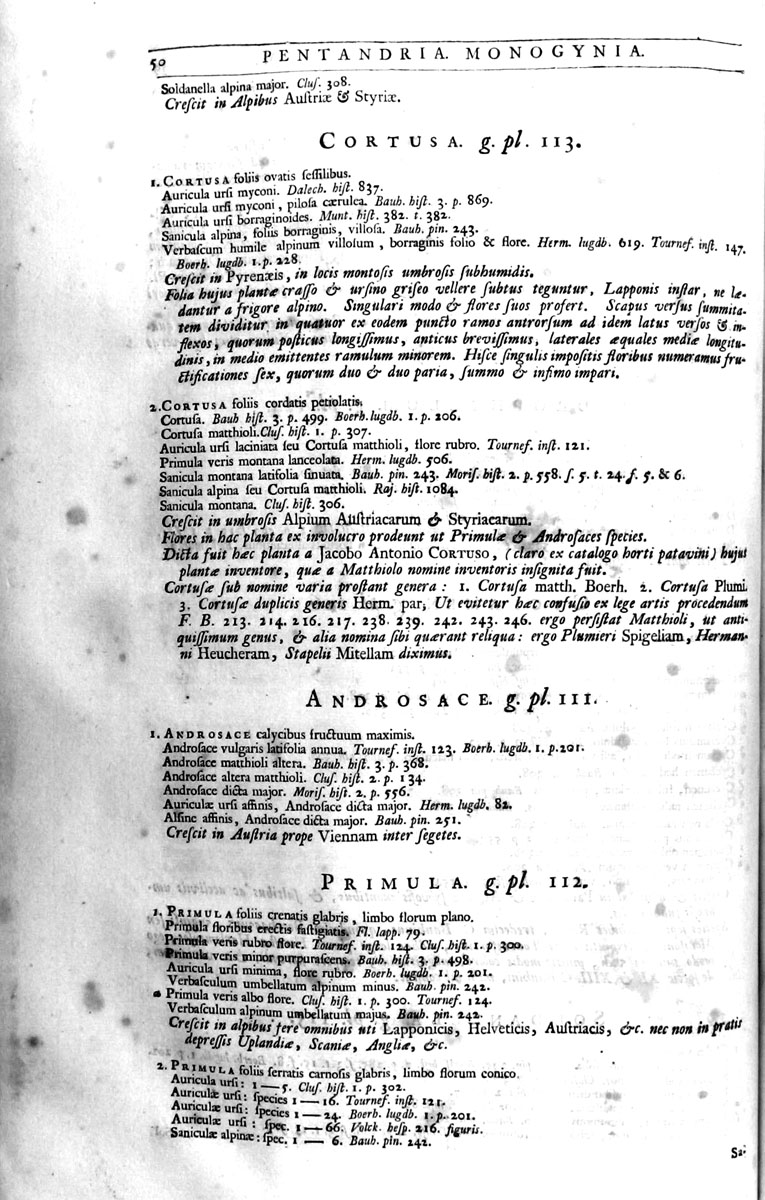 50 PENTANDRIA. MONOGYNIA.
Soldanella alpina major. Cluſ. 308.
Creſcit in Alpibus Auſtriæ & Styriæ.
CORTUSA. g. pl. 113.
1. CORTUSA foliis ovatis ſeſſilibus.
Auricula urſi myconi. Dalech. hiſt. 837.
Auricula urſi myconi, piloſa cærulea. Bauh. hiſt. 3. p. 869.
Auricula urſi borraginoides. Munt. hiſt. 382. t. 382.
Sanicula alpina, foliis borraginis, villoſa. Bauh. pin. 243.
Verbaſcum humile alpinum villoſum, borraginis folio & flore. Herm. lugdb. 619. Tournef. inſt. 147.
Boerh. lugdb. 1. p. 228.
Creſcit in Pyrenæis, in locis montoſis umbroſis ſubhumidis.
Folia hujus plantæ craſſo & urſino griſeo vellere ſubtus teguntur, Lapponis inſtar, ne læ-
dantur a frigore alpino. Singulari modo & flores ſuos profert. Scapus verſus ſummita-
tem dividitur in quatuor ex eodem puncto ramos antrorſum ad idem latus verſos & in-
flexos, quorum poſticus longiſſimus, anticus breviſſimus, laterales æquales mediæ longitu-
dinis, in medio emittentes ramulum minorem. Hiſce ſingulis impoſitis floribus numeramus fru-
ctificationes ſex, quorum duo & duo paria, ſummo & infimo impari.
2. CORTUSA foliis cordatis petiolatis.
Cortuſa. Bauh hiſt. 3. p. 499. Boerh. lugdb. 1. p. 206.
Cortuſa matthioli. Cluſ. hiſt. 1. p. 307.
Auricula urſi laciniata ſeu Cortuſa matthioli, flore rubro. Tournef. inſt. 121.
Primula veris montana lanceolata. Herm. lugdb. 506.
Sanicula montana latifolia ſinuata. Bauh. pin. 243. Moriſ. hiſt. 2. p. 558. ſ. 5. t. 24. f. 5. & 6.
Sanicula alpina ſeu Cortuſa matthioli. Raj. hiſt. 1084.
Sanicula montana. Cluſ. hiſt. 306.
Creſcit in umbroſis Alpium Auſtriacarum & Styriacarum.
Flores in hac planta ex involucro prodeunt ut Primulæ & Androſaces ſpecies.
Dicta fuit hæc planta a Jacobo Antonio CORTUSO, (claro ex catalogo horti patavini) hujus
plantæ inventore, quæ a Matthiolo nomine inventoris inſignita fuit.
Cortuſæ ſub nomine varia proſtant genera: 1. Cortuſa matth. Boerh. 2. Cortuſa Plumi.
3. Cortuſæ duplicis generis Herm. par. Ut evitetur hæc confuſio ex lege artis procedendum
F. B. 213. 214. 216. 217. 238. 239. 242. 243. 246. ergo perſiſtat Matthioli, ut anti-
quiſſimum genus, & alia nomina ſibi quærant reliqua: ergo Plumieri Spigeliam, Herman-
ni Heucheram, Stapelii Mitellam diximus.
ANDROSACE. g. pl. 111.
1. ANDROSACE calycibus fructuum maximis.
Androſace vulgaris latifolia annua. Tournef. inſt. 123. Boerh. lugdb. 1. p. 201.
Androſace matthioli altera. Bauh. hiſt. 3. p. 368.
Androſace altera matthioli. Cluſ. hiſt. 2. p. 134.
Androſace dicta major. Moriſ. hiſt. 2. p. 556.
Auriculæ urſi affinis, Androſace dicta major. Herm. lugdb. 82.
Alſine affinis, Androſace dicta major. Bauh. pin. 251.
Creſcit in Auſtria prope Viennam inter ſegetes.
PRIMULA. g. pl. 112.
1. PRIMULA foliis crenatis glabris, limbo florum plano.
Primula floribus erectis faſtigiatis. Fl. lapp. 79.
Primula veris rubro flore. Tournef. inſt. 124. Cluſ. hiſt. 1. p. 300.
Primula veris minor purpuraſcens. Bauh. hiſt. 3. p. 498.
Auricula urſi minima, flore rubro. Boerh. lugdb. 1. p. 201.
Verbaſculum umbellatum alpinum minus. Bauh. pin. 242.
Primula veris albo flore. Cluſ. hiſt. 1. p. 300. Tournef. 124.
Verbaſculum alpinum umbellatum majus. Bauh. pin. 242.
Creſcit in alpibus fere omnibus uti Lapponicis, Helveticis, Auſtriacis, &c. nec non in pratis
depreſſis Uplandiæ, Scaniæ, Angliæ, &c.
2. PRIMULA foliis ſerratis carnoſis glabris, limbo florum conico.
Auricula urſi: 1 — 5. Cluſ. hiſt. 1. p. 302.
Auriculæ urſi: ſpecies 1 — 16. Tournef. inſt. 121.
Auriculæ urſi: ſpecies 1 — 24. Boerh. lugdb. 1. p. 201.
Auriculæ urſi: ſpec. 1 — 66. Volck. heſp. 216. figuris.
Saniculæ alpinæ: ſpec. 1 — 6. Bauh. pin. 242.